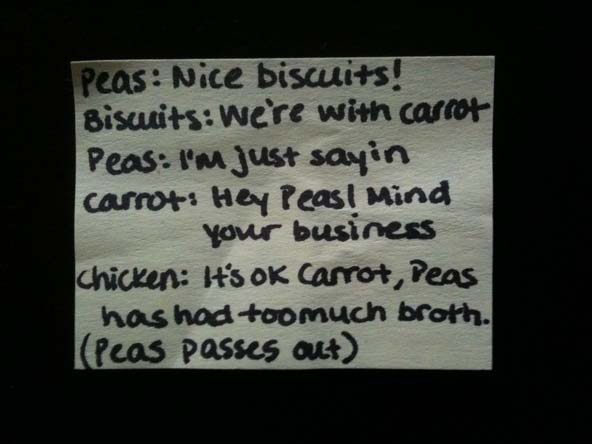 Peas: Nice biscuits!
Biscuits: We're with carrot
Peas: I'm just sayin
carrot: Hey Peas! Mind
your business
chicken: It's ok Carrot, Peas
has had too much broth.
(Peas passes out)